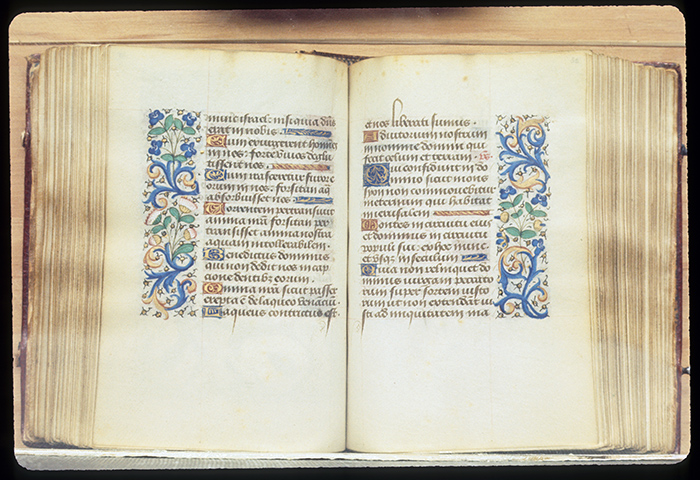 nunc israel: nisi quia dns
erat in nobis
Cum exurgerent homines
in nos: forte vivos deglu
tissent nos
Cum irasceretur furor
eorum in nos: forsitan aq
absorbuisset nos
Torrentem pertransivit
anima nra: forsitan per
transisset anima nostra
aquam intollerabilem.
Benedictus dominus
qui non dedit nos in cap
cione dentib3 eorum.
Anima nra sicut passer
erepta ē de laqueo venanciu.
Laqueus contritus est
et nos liberati sumus.
Adiutorium nostrum
in nomine domini qui
fecit celum et terram. ps.
Qui confidunt in do
mino sicut mons
syon non commovebitur
in eternum qui habitat
in iherusalem
Montes in circuitu eius
et dominus in circuitu
populi sui: ex hoc nunc
et usq3 in seculum
Quia non relinquet do
minus virgam peccato
rum super sortem iusto
rum ut non extendant iu
sti ad iniquitatem ma